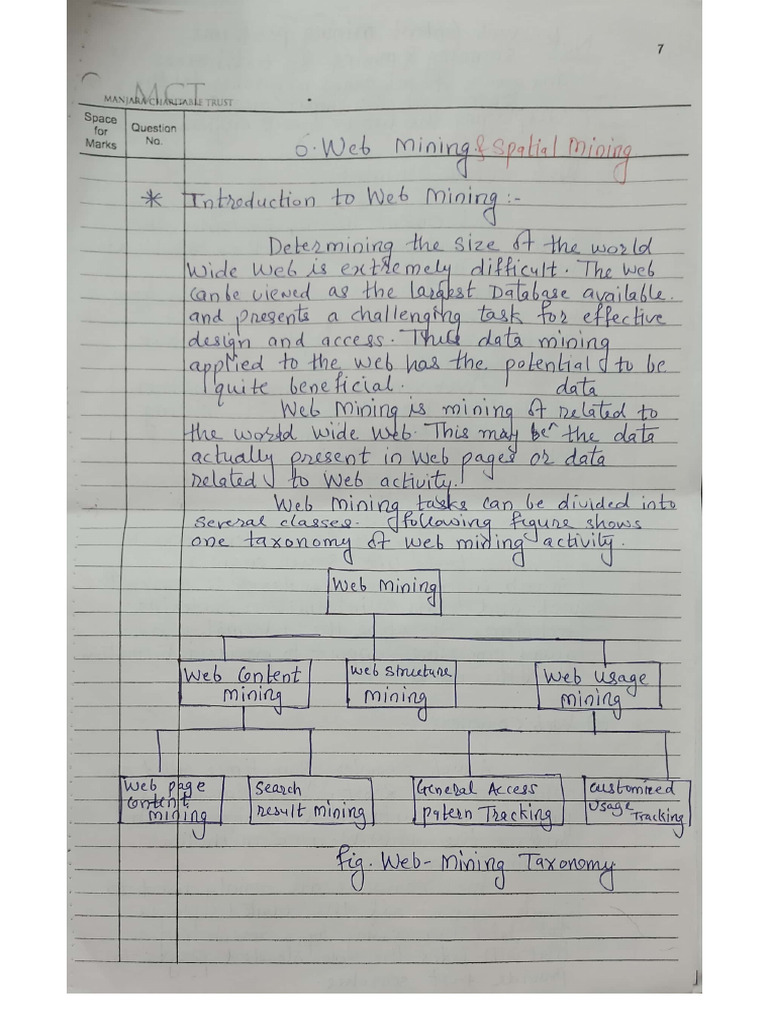 7
MCT
MANJARA CHARITABLE TRUST
Space for Marks
Question No.
6. Web Mining & Spatial Mining
* Introduction to Web Mining :-
Determining the size of the world
wide web is extremely difficult. The web
can be viewed as the largest Database available.
and presents a challenging task for effective
design and access. Thus data mining
applied to the web has the potential to be
quite beneficial.
data
Web Mining is mining of related to
the world wide web. This may be the data
actually present in web pages or data
related to web activity.
Web mining tasks can be divided into
several classes. following figure shows
one taxonomy of web mining activity.
Web Mining
Web Content Mining
Web Structure Mining
Web Usage Mining
Web page Content Mining
Search result mining
General Access patern Tracking
Customized Usage Tracking
Fig. Web-Mining Taxonomy